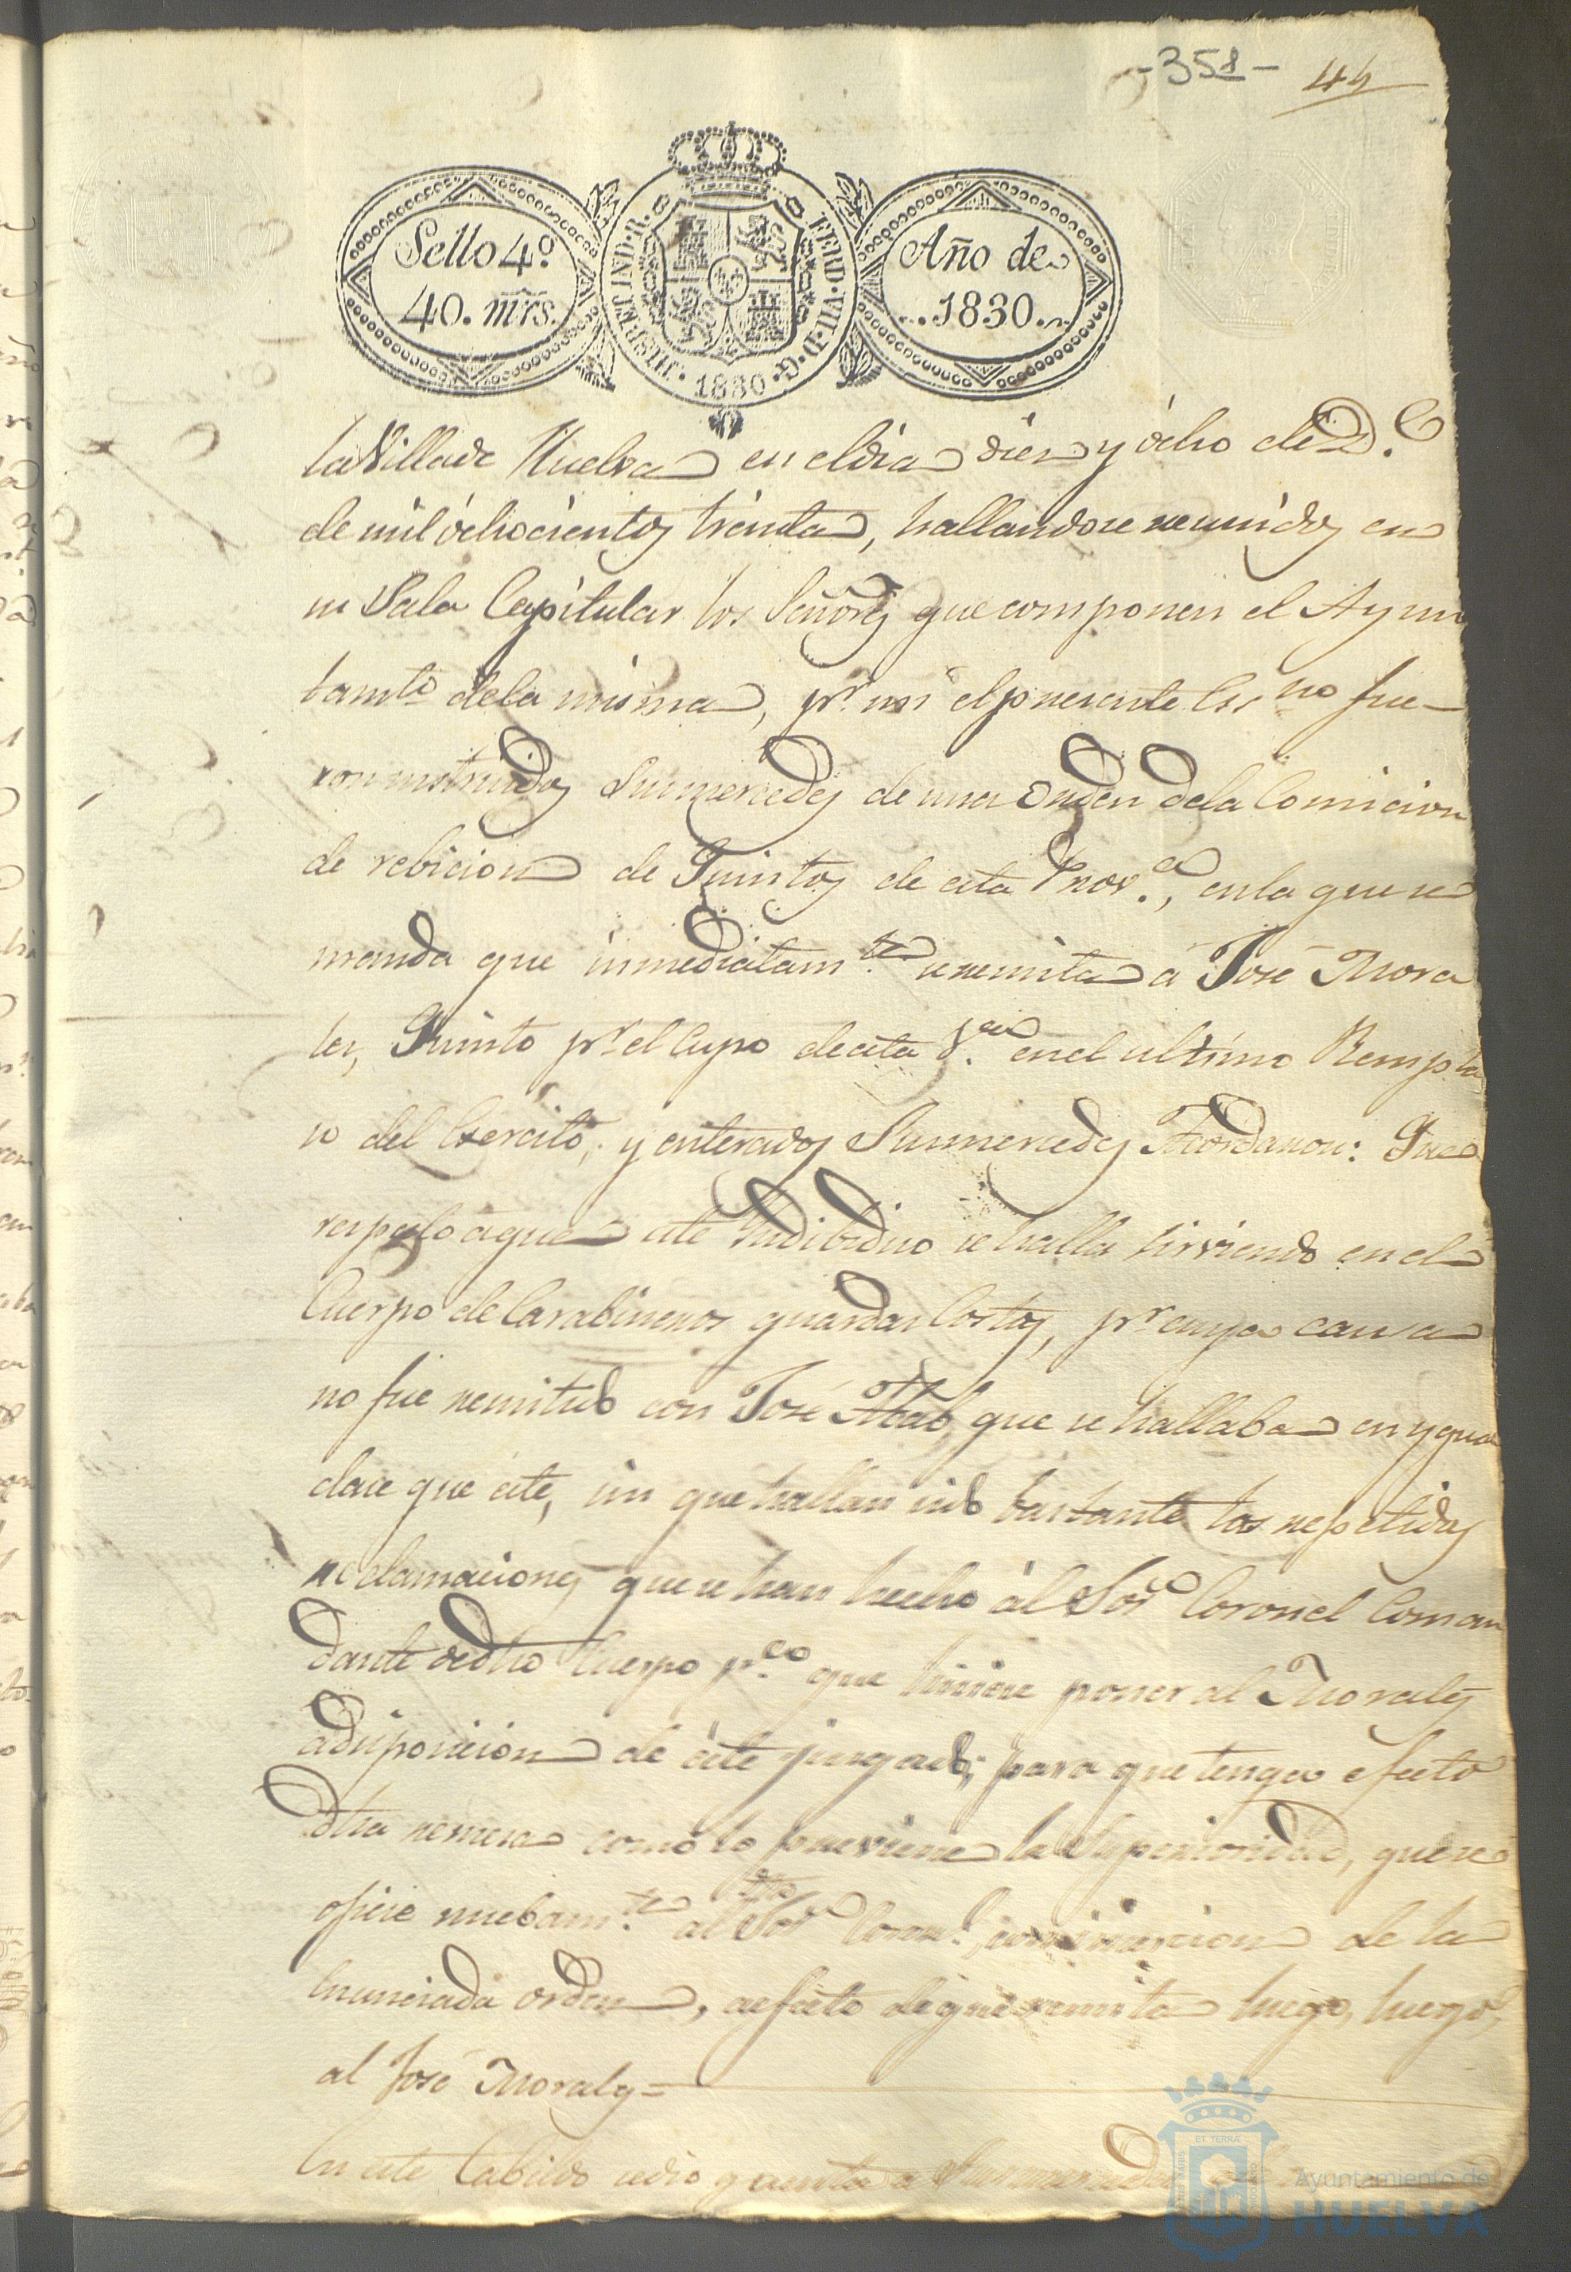 -358- 44
Sello 4º
40. mrs.
HISP. ET IND. R. FERD. VII D. G. 1830
Año de
1830.
la Villa de Huelva en el dia diez y ócho de D.e
de mil óchocientos tréinta, hallandose reunidos en
su Sala Capitular los Señores que componen el Ayun
tamto. de la misma, pr. mi el presente Essno fue-
ron instruidos Sus mercedes de una Orden de la Comicion
de rebicion de Quintos de esta Prov.a, en la que se
manda que inmediatam.te se remita á José Mora
les, Quinto pr. el Cupo de esta V.a en el ultimo Rempla
so del Exercito; y enterados Sus mercedes Acordaron: Que
respecto a que este Yndibiduo se halla sirviendo en el
Cuerpo de Carabineros guardas Costas, pr. cuya causa
no fue remitido con José Abad, que se hallaba en ygual
clase que éste, sin que hallan sido bastante las repetidas
reclamaciones que se han hecho ál Sor. Coronel Coman
dante de dho Cuerpo pa. que hiciese poner al Morales
adisposicion de éste jusgado; para que tenga efecto
dha remesa como lo previene la Superioridad, que se
oficie nuebam.te al dho Sor. Coronl. con insercion de la
Enunciada orden, a efecto de que remita luego, luego,
al José Morales=
En este Cabildo se dio quenta a Sus mercedes
ET TERRA
Ayuntamiento de
HUELVA